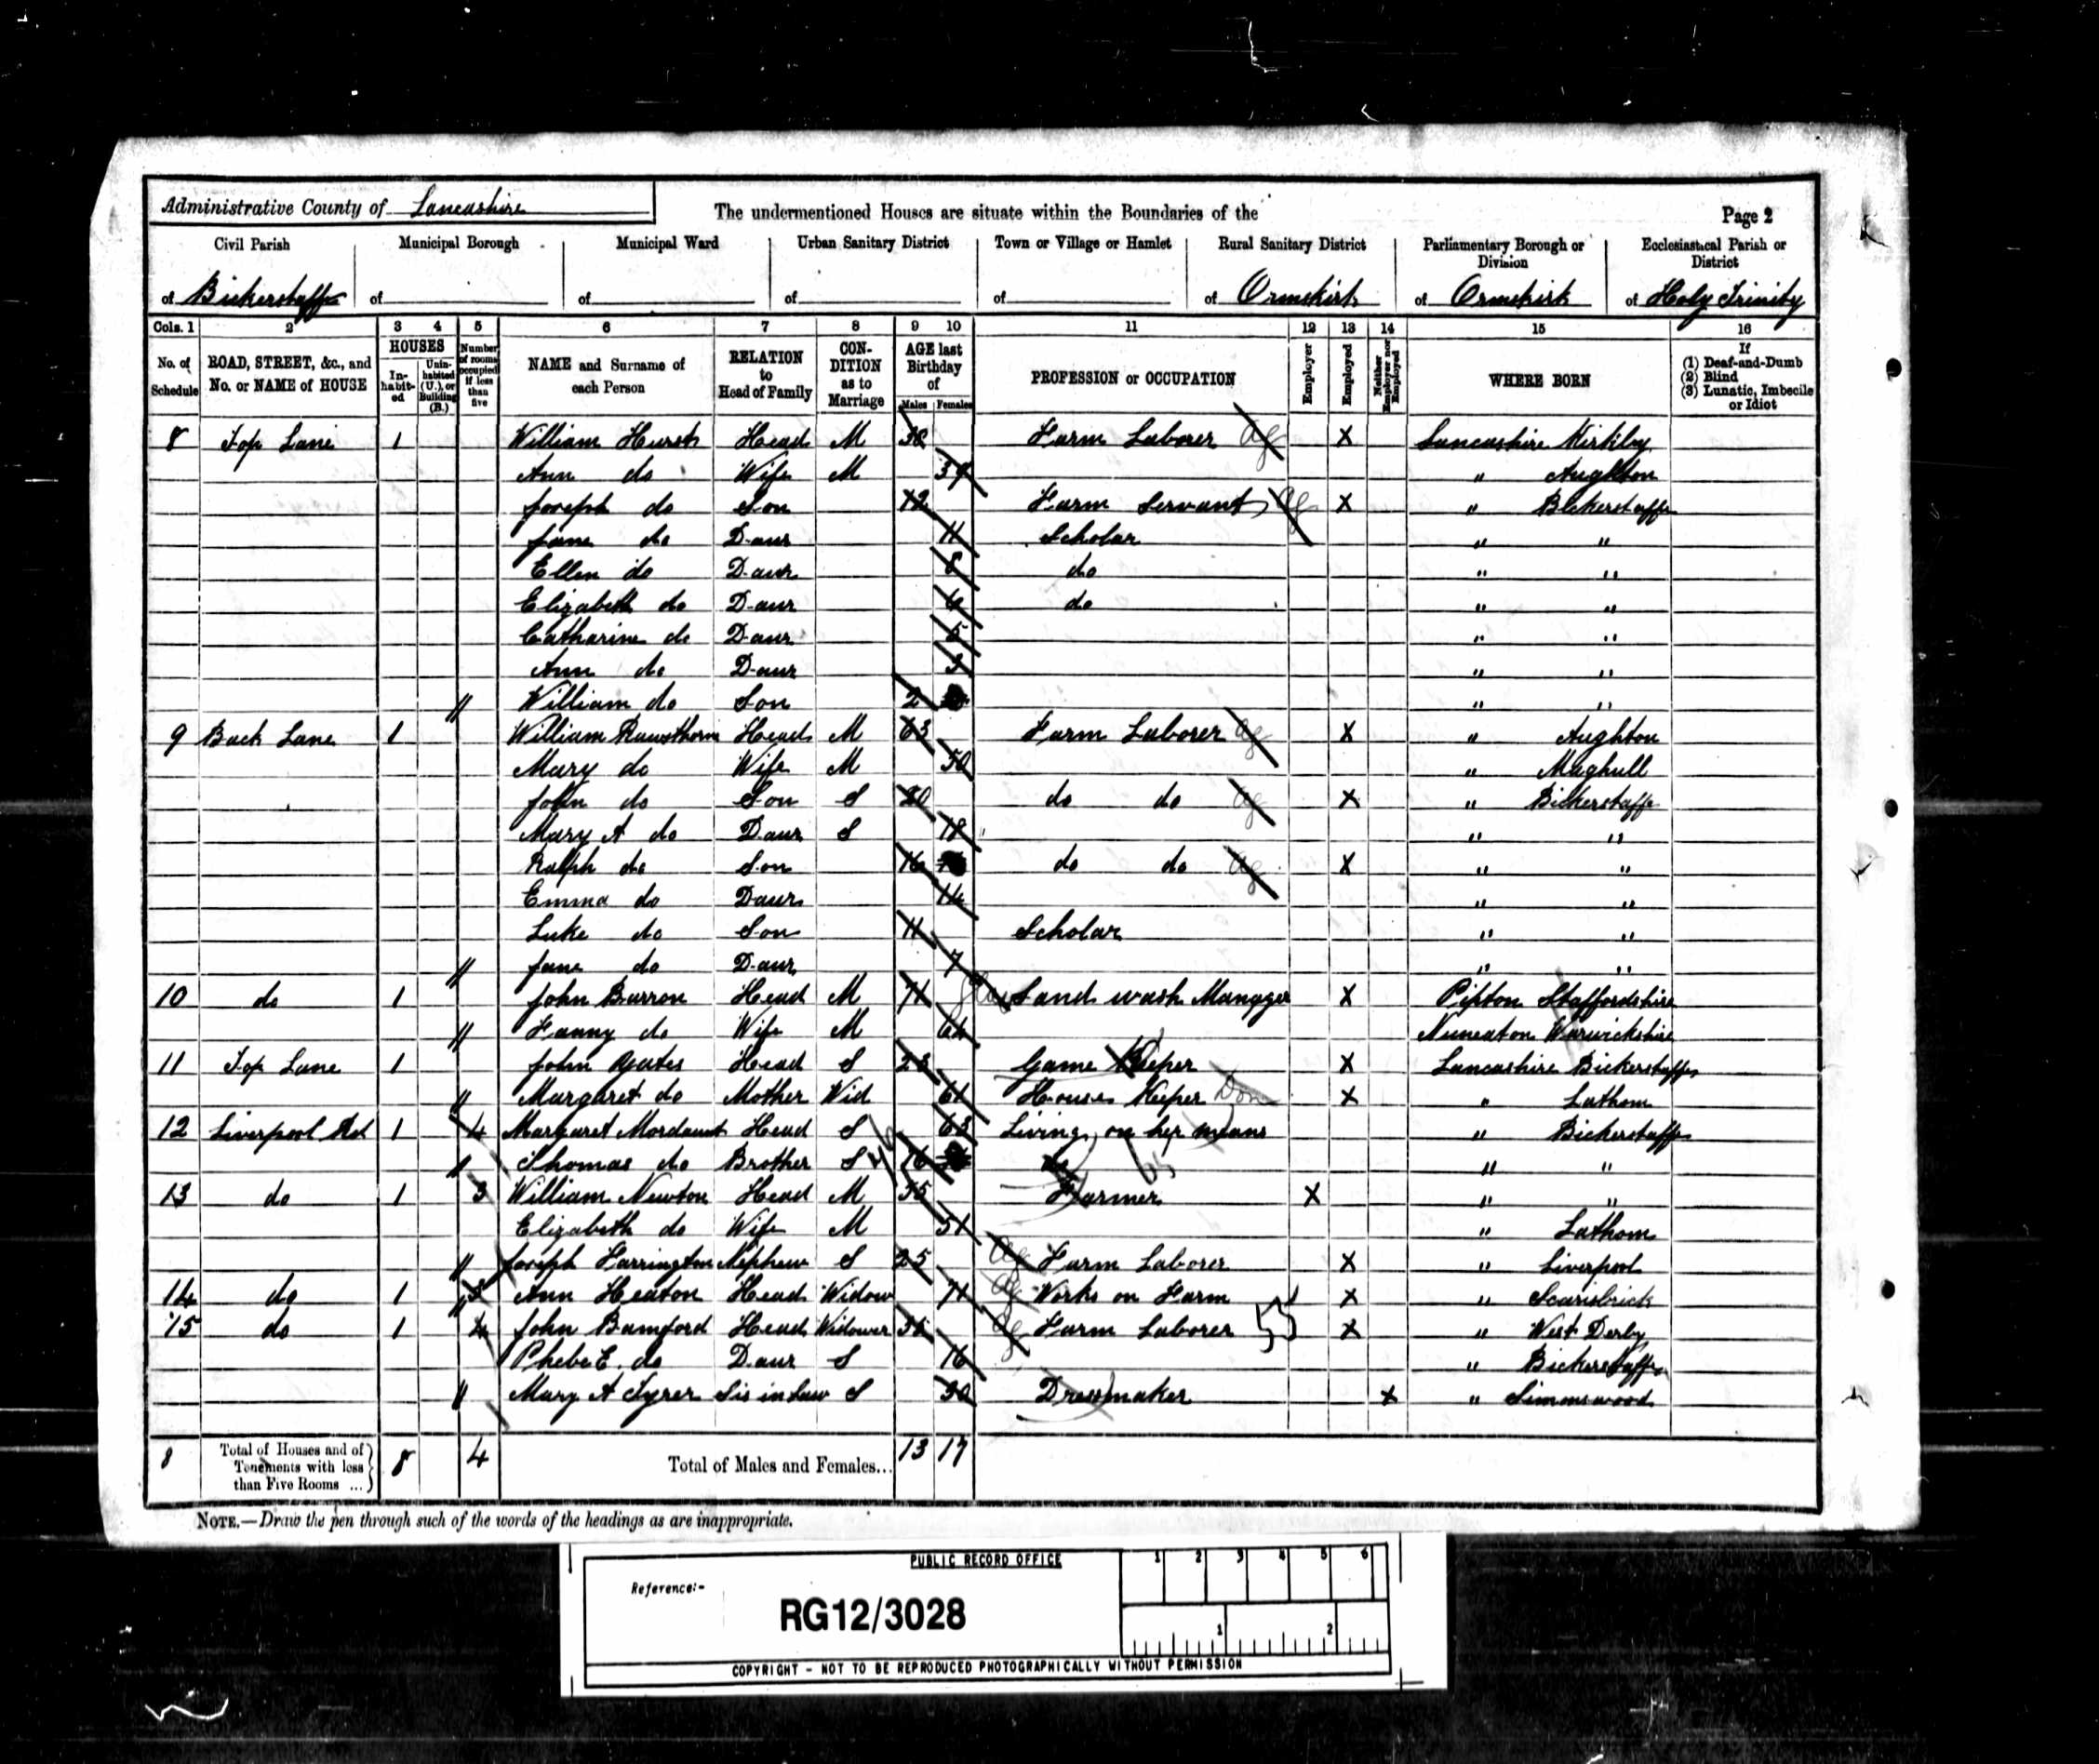 Administrative County of Lancashire
The undermentioned Houses are situate within the Boundaries of the
Page 2
Civil Parish Municipal Borough Municipal Ward Urban Sanitary District Town or Village or Hamlet Rural Sanitary District Parliamentary Borough or Division Ecclesiastical Parish or District
of Bickerstaffe of of of of of Ormskirk of Ormskirk of Holy Trinity
Cols. 1 2 3 4 5 6 7 8 9 10 11 12 13 14 15 16
No. of Schedule ROAD, STREET, &c., and No. or NAME of HOUSE HOUSES In-habit-ed Unin-habited (U.), or Building (B.) Number of rooms occupied if less than five NAME and Surname of each Person RELATION to Head of Family CON-DITION as to Marriage AGE last Birthday of Males Females PROFESSION or OCCUPATION Employer Employed Neither Employer nor Employed WHERE BORN If (1) Deaf-and-Dumb (2) Blind (3) Lunatic, Imbecile or Idiot
8 Top Lane 1 William Hurst Head M 38 Farm Laborer Ag X Lancashire Kirkby
Ann do Wife M " Aughton
Joseph do Son 12 Farm Servant Ag X " Bickerstaffe
Jane do Daur 11 Scholar " "
Ellen do Daur 8 do " "
Elizabeth do Daur 6 do " "
Catharine do Daur 5 " "
Ann do Daur 3 " "
William do Son 2 " "
9 Back Lane 1 William Rawsthorn Head M 63 Farm Laborer Ag X " Aughton
Mary do Wife M 50 " Maghull
John do Son S 20 do do Ag X " Bickerstaffe
Mary A do Daur S 18 " "
Ralph do Son 16 do do Ag X " "
Emma do Daur 14 " "
Luke do Son 11 Scholar " "
Jane do Daur 7 " "
10 do 1 John Barron Head M 71 Sand wash Manager X Tipton Staffordshire
Fanny do Wife M 64 Nuneaton Warwickshire
11 Top Lane 1 John Yates Head S 23 Game Keeper X Lancashire Bickerstaffe
Margaret do Mother Wid 61 House Keeper Dom X " Lathom
12 Liverpool Rd 1 4 Margaret Mordaunt Head S 63 Living on her means " Bickerstaffe
Thomas do Brother S 76 " "
13 do 1 3 William Newton Head M 55 Farmer X " "
Elizabeth do Wife M 51 " Lathom
Joseph Harrington Nephew S 25 Ag Farm Laborer X " Liverpool
14 do 1 Ann Heaton Head Widow 71 Ag Works on Farm X " Scarisbrick
15 do 1 4 John Bamford Head Widower Ag Farm Laborer 55 X " West Derby
Phebe E. do Daur S 16 " Bickerstaffe
Mary A Tyrer Sis in Law S 30 Dressmaker X " Simmswood
8 Total of Houses and of Tenements with less than Five Rooms ... 8 4 Total of Males and Females... 13 17
NOTE.—Draw the pen through such of the words of the headings as are inappropriate.
PUBLIC RECORD OFFICE
1 2 3 4 5 6
Reference:-
RG12/3028
1 2
COPYRIGHT - NOT TO BE REPRODUCED PHOTOGRAPHICALLY WITHOUT PERMISSION